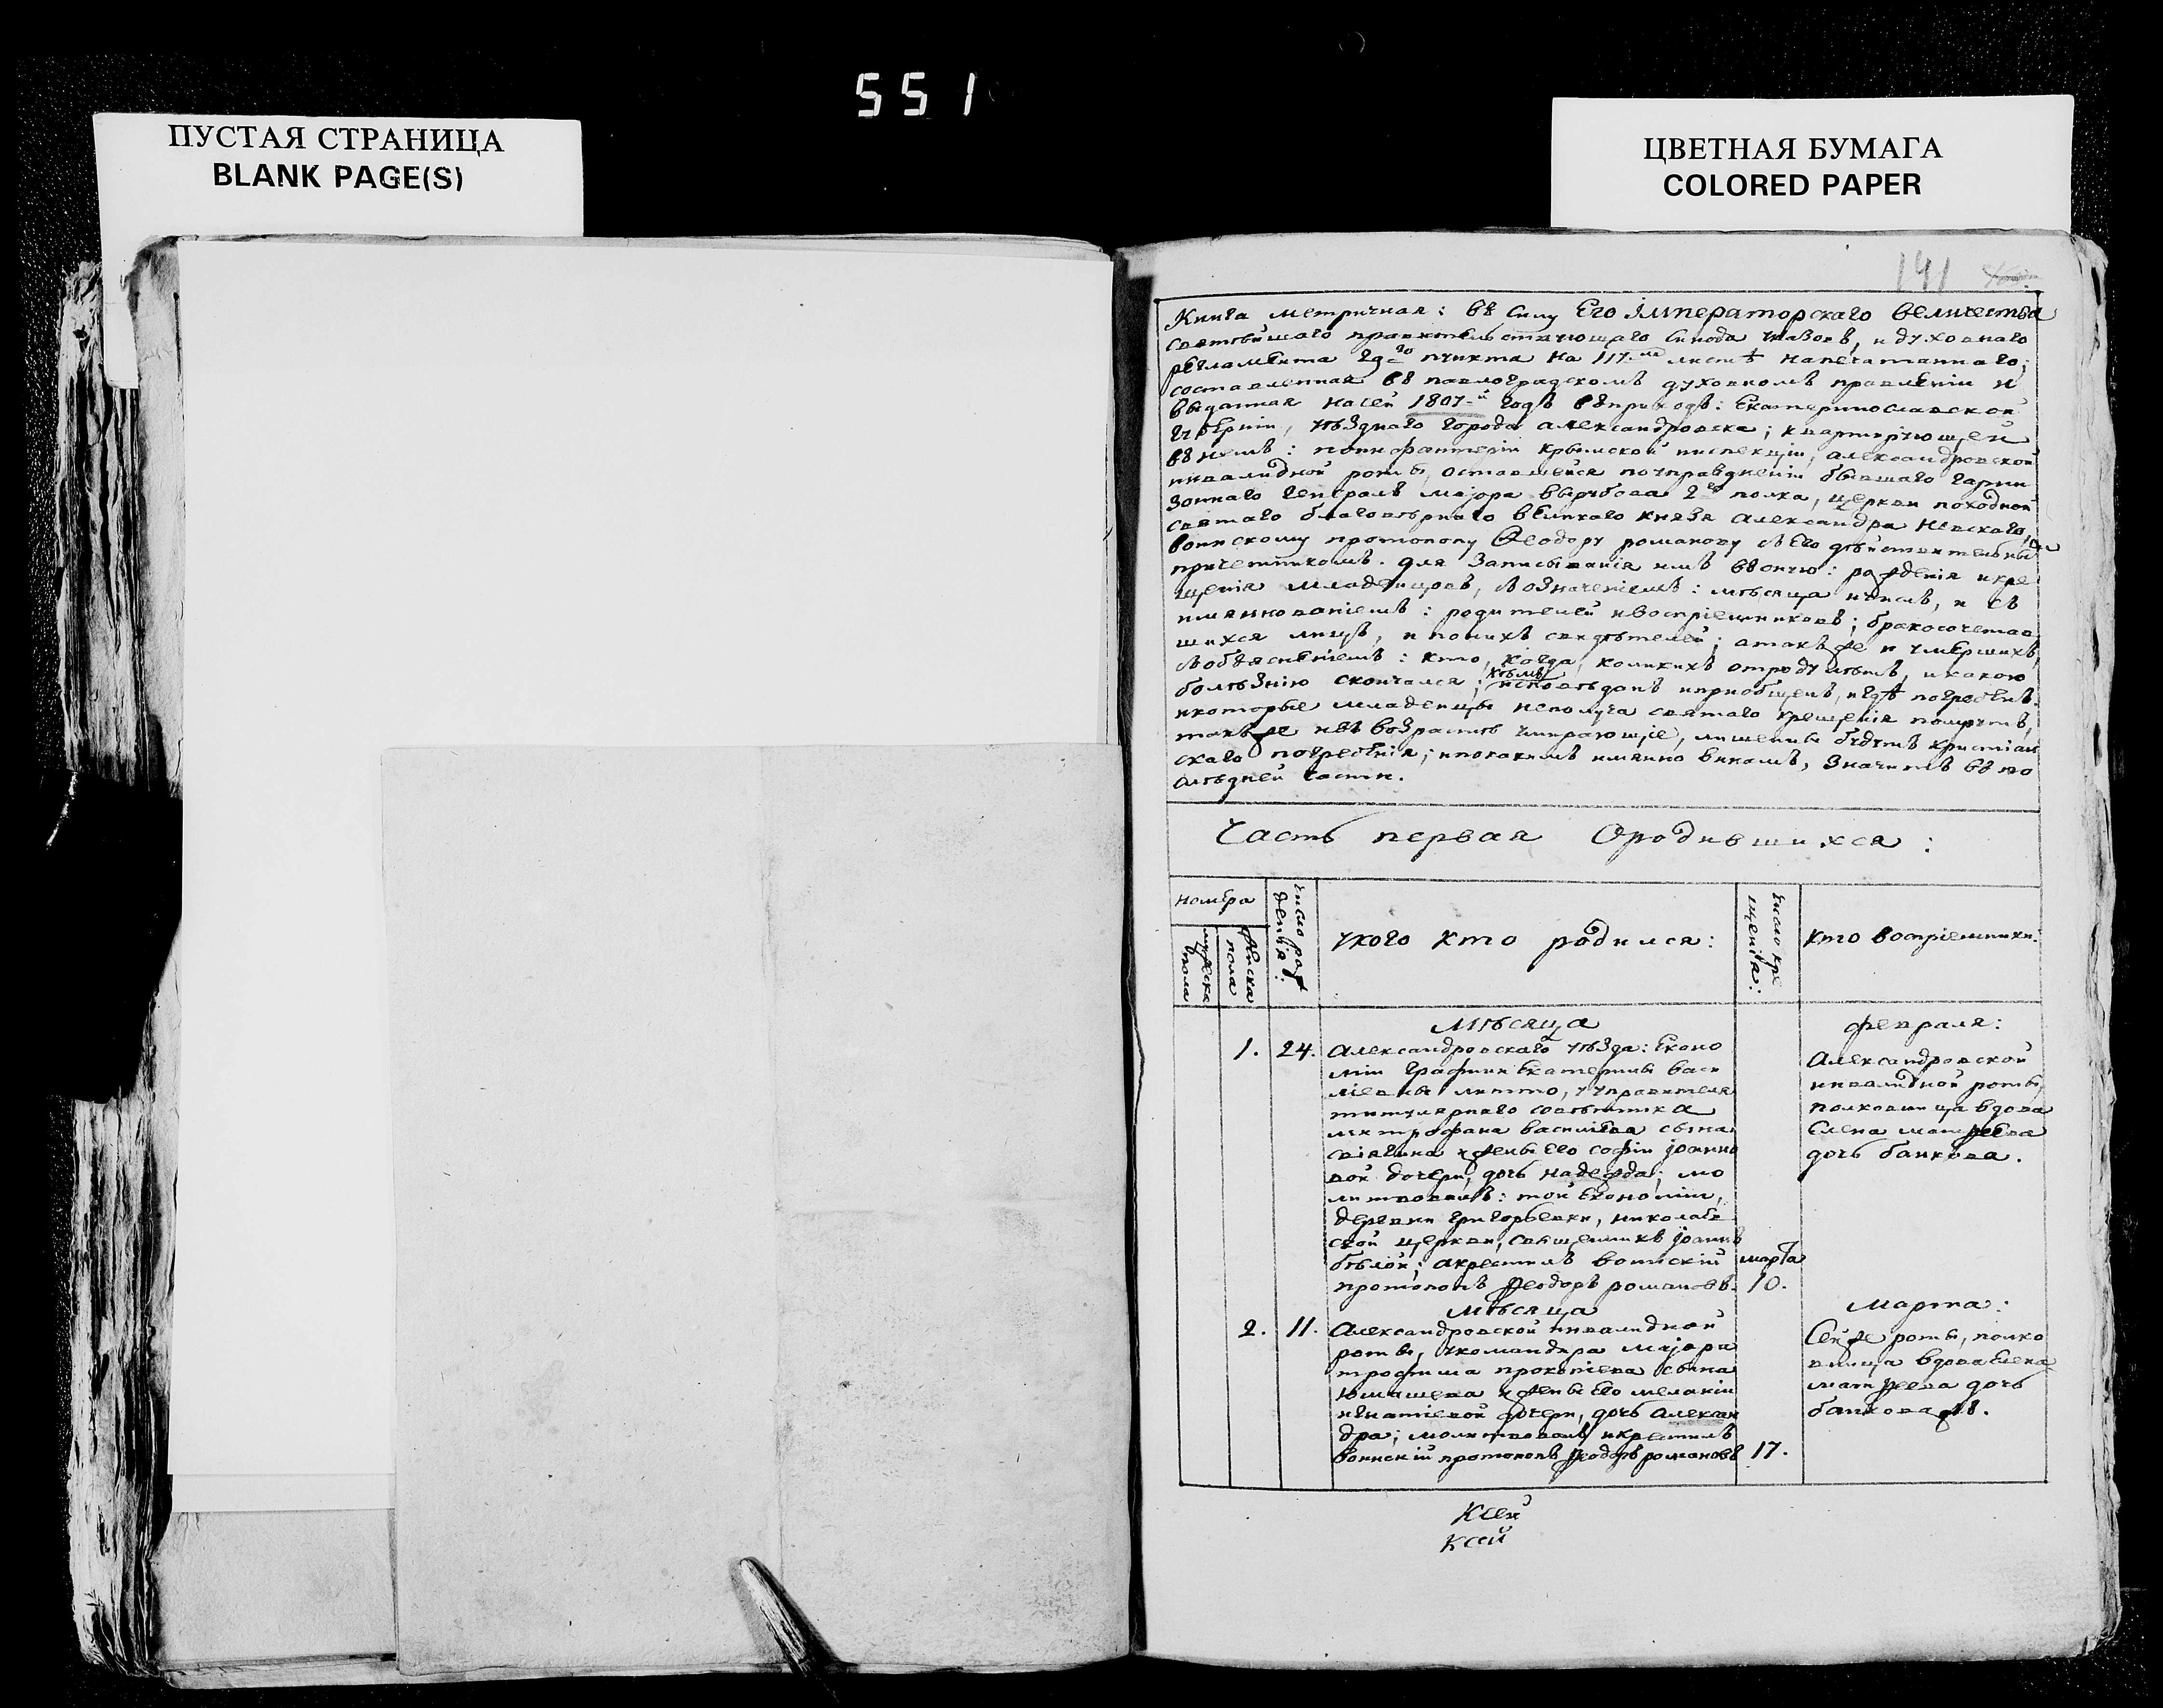 551
ПУСТАЯ СТРАНИЦА
BLANK PAGE(S)
ЦВЕТНАЯ БУМАГА
COLORED PAPER
141
Книга метричная: въ силу Его Императорскаго величества
святѣйшаго правительствующаго синода указовъ, и духовнаго
регламента 29го пункта на 117м листѣ напечатаннаго;
составленная въ павлоградскомъ духовномъ правленіи и
выданная на сей 1807-й годъ въ приходъ: Екатеринославской
губерніи, уѣзднаго города александровска; квартирующей
въ немъ: по инфантеріи крымской инспекціи, александровской
инвалидной роты, оставшейся по упраздненіи бывшаго гарни
зоннаго генералъ маіора вырубова 2го полка, церкви походной
святаго благовѣрнаго великаго князя александра невскаго,
воинскому протопопу Феодору романову съ его дѣйствительнымъ
причетникомъ. для записыванія имъ въ оную: рожденія и кре
щенія младенцовъ, съ означеніемъ: мѣсяца и числъ, и съ
имяннованіемъ: родителей и воспріемниковъ; бракосочетав
шихся лицъ, и по нихъ свидѣтелей; а такъ же и умершихъ,
съ объясненіемъ: кто, когда, коликихъ отроду лѣтъ, и какою
болѣзнію скончался; кѣмъ исповѣданъ и пріобщенъ, и гдѣ погребенъ.
и которые младенцы неполуча святаго крещенія помрутъ,
такъ же и въ возрастѣ умирающіе, лишены будутъ христіан
скаго погребенія; и по какимъ имянно винамъ, значитъ въ по
слѣдней части.
Часть первая О родившихся:
номера
мужеска пола
женска пола
число рож
денія:
у кого кто родился:
число кре
щенія:
кто воспріемники:
Мѣсяца
февраля:
1. 24. Александровскаго уѣзда: Еконо
міи графини Екатерины васи
ліевны литто, у управителя
титулярнаго совѣтника
митрофана васильева сына
свіягина и жены его софіи іоанно
вой дочери, дочь надежда; мо
литвовалъ: той Економіи,
деревни григорьевки, николаев
ской церкви, священникъ іоаннъ
бѣлой; а крестилъ воинскій
протопопъ феодоръ романовъ.
марта
10.
Александровской
инвалидной роты,
полковница вдова
Елена матфеева
дочь банкова.
Мѣсяца
Марта:
2. 11. Александровской инвалидной
роты, у командира маіора
трофима прокопіева сына
юмашева и жены его меланіи
игнатіевой дочери, дочь алексан
дра; молитвовалъ и крестилъ
воинскій протопопъ феодоръ романовъ
17.
Сей же роты, полко
вница вдова Елена
матфеева дочь
банкова жъ.
К сей
К сей